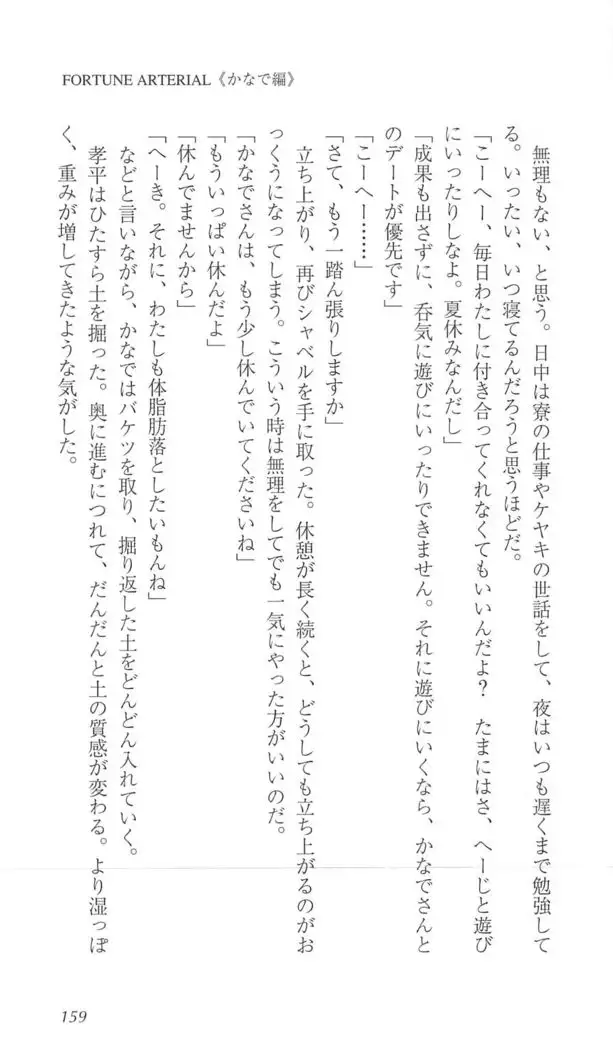 FORTUNE ARTERIAL《かなで編》
　無理もない、と思う。日中は寮の仕事やケヤキの世話をして、夜はいつも遅くまで勉強して
る。いったい、いつ寝てるんだろうと思うほどだ。
「こーへー、毎日わたしに付き合ってくれなくてもいいんだよ？　たまにはさ、へーじと遊び
にいったりしなよ。夏休みなんだし」
「成果も出さずに、呑気に遊びにいったりできません。それに遊びにいくなら、かなでさんと
のデートが優先です」
「こーへー……」
「さて、もう一踏ん張りしますか」
　立ち上がり、再びシャベルを手に取った。休憩が長く続くと、どうしても立ち上がるのがお
っくうになってしまう。こういう時は無理をしてでも一気にやった方がいいのだ。
「かなでさんは、もう少し休んでいてくださいね」
「もういっぱい休んだよ」
「休んでませんから」
「へーき。それに、わたしも体脂肪落としたいもんね」
　などと言いながら、かなではバケツを取り、掘り返した土をどんどん入れていく。
　孝平はひたすら土を掘った。奥に進むにつれて、だんだんと土の質感が変わる。より湿っぽ
く、重みが増してきたような気がした。
159